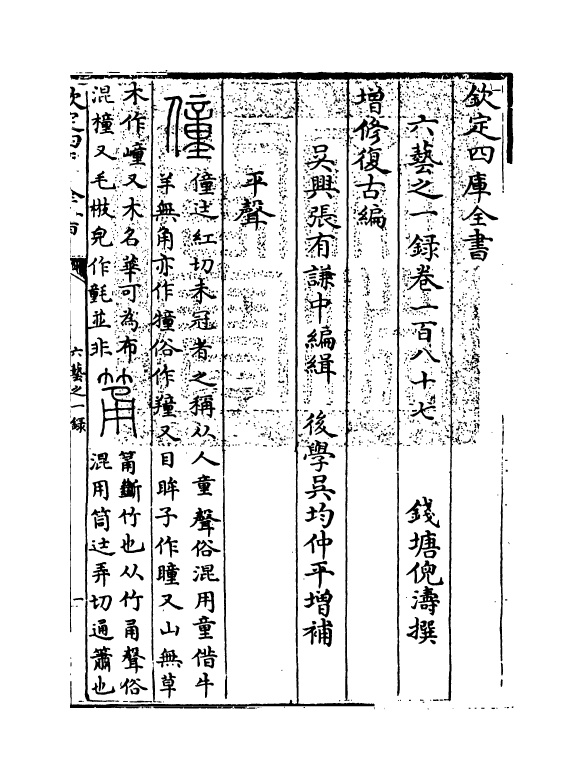 欽定四庫全書
六藝之一錄卷一百八十七
錢塘倪濤撰
增修復古編
吳興張有謙中編緝　後學吳均仲平增補
平聲
僮　僮㳀紅切未冠者之稱从人童聲俗混用童偕牛
羊無角亦作犝俗作羵又目眸子作瞳又山無草
木作㠉又木名華可為布
混橦又毛㪚皃作氃並非
筩　筩斷竹也从竹甬聲俗
混用筒㳀弄切通簫也
欽定四庫全書
六藝之一錄
一